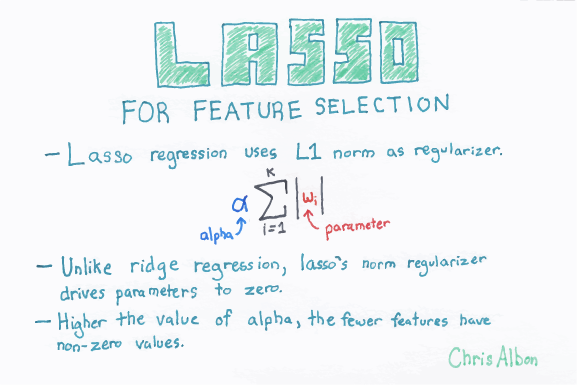 LASSO
FOR FEATURE SELECTION
- Lasso regression uses L1 norm as regularizer.
K
α Σ |wi|
i=1
alpha
parameter
- Unlike ridge regression, lasso's norm regularizer
drives parameters to zero.
- Higher the value of alpha, the fewer features have
non-zero values.
Chris Albon